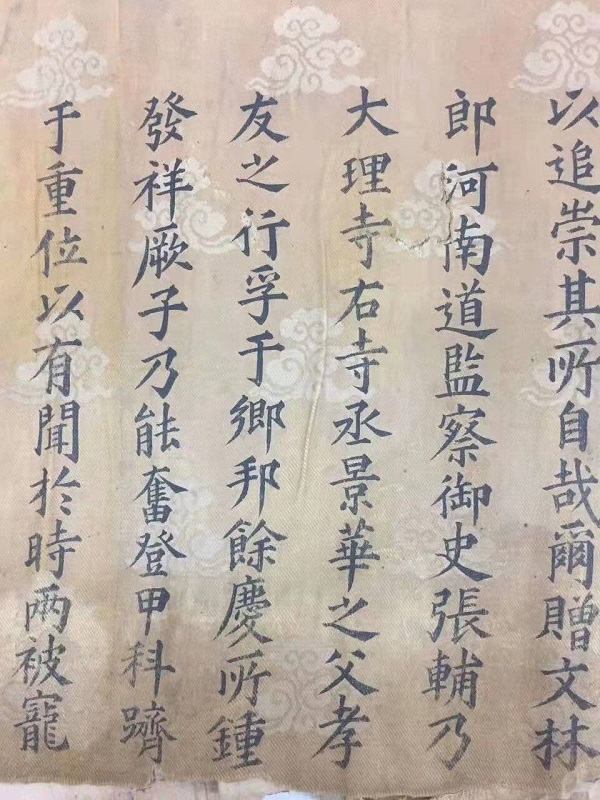 以追崇其所自哉爾贈文林
郎河南道監察御史張輔乃
大理寺右寺丞景華之父孝
友之行孚于鄉邦餘慶所鍾
發祥厥子乃能奮登甲科躋
于重位以有聞於時兩被寵